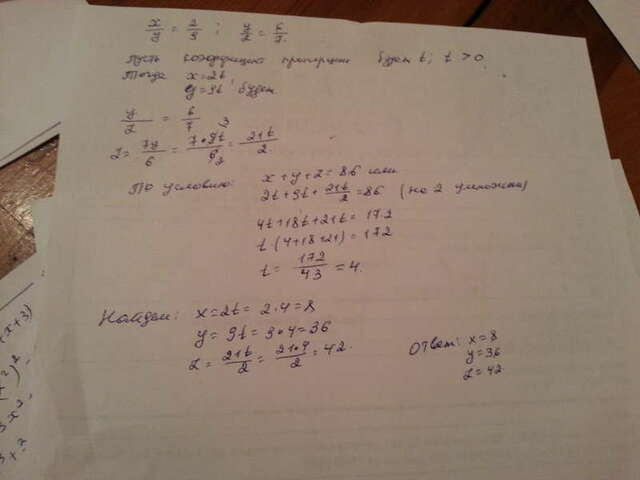 x/y = 2/9 ; y/z = 6/7.
Пусть коэффициент пропорции будет t; t > 0
Тогда x=2t,
y=9t будет
y/z = 6/7
z = 7y/6 = 7*9t/6 = 21t/2.
По условию: x+y+z=86 или
2t+9t+21t/2=86 (на 2 умножаем)
4t+18t+21t=172
t·(4+18+21)=172
t = 172/43 = 4.
Найдем: x=2t= 2·4=8
y=9t=9*4=36
z= 21t/2 = 21*4/2 = 42.
Ответ: x=8
y=36
z=42.
(x+3)